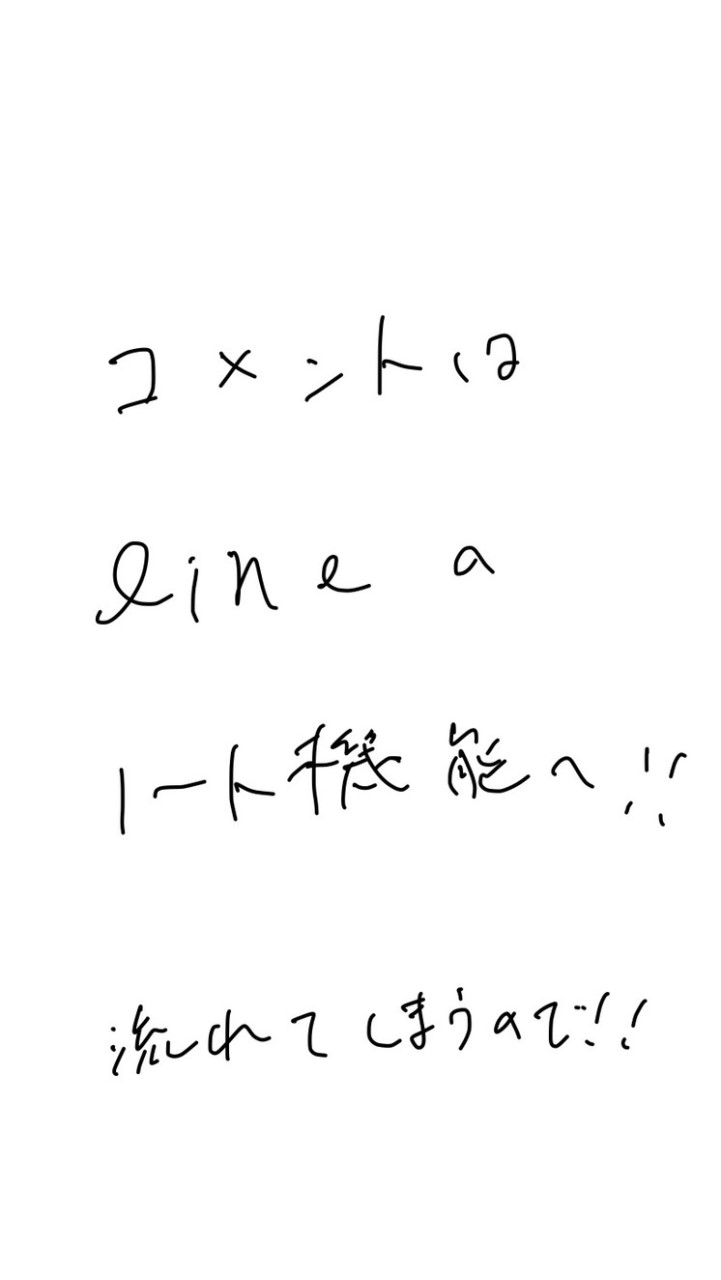 コメントは
lineの
ノート機能へ!!
流れてしまうので!!